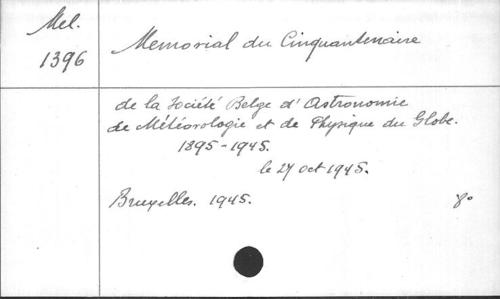 Mel.
1396
Memorial du Cinquantenaire
de la Société Belge d'Astronomie
de Météorologie et de Physique du Globe.
1895-1945.
le 27 oct 1945.
Bruxelles. 1945. 8°